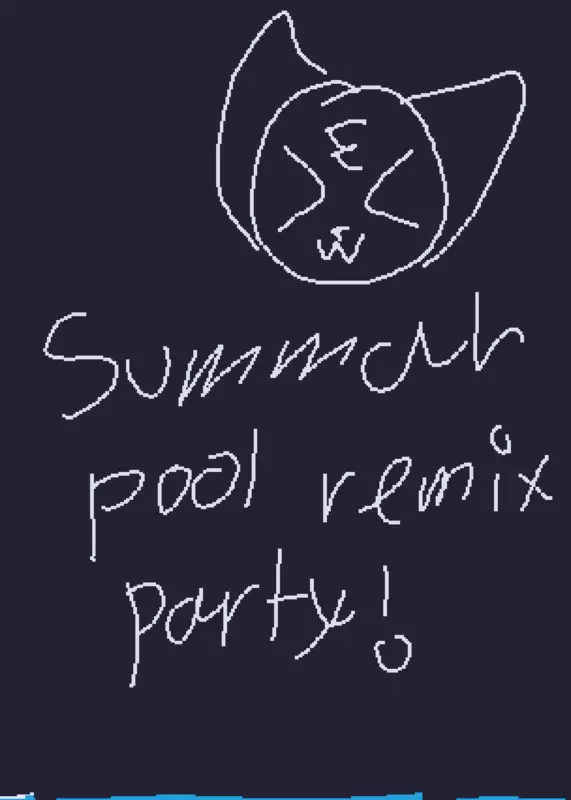 E
Summah
pool remix
party!